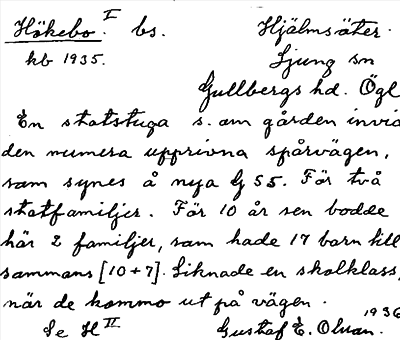 Hökebo. I bs. Hjälmsäter.
kb 1935. Ljung sn
Gullbergs hd. Ögl
En statstuga s. om gården invid
den numera upprivna spårvägen,
som synes å nya G 55. För två
statfamiljer. För 10 år sen bodde
här 2 familjer, som hade 17 barn till
sammans [10+7]. Liknade en skolklass,
när de kommo ut på vägen.
Se H II Gustaf E. Olsson. 1936